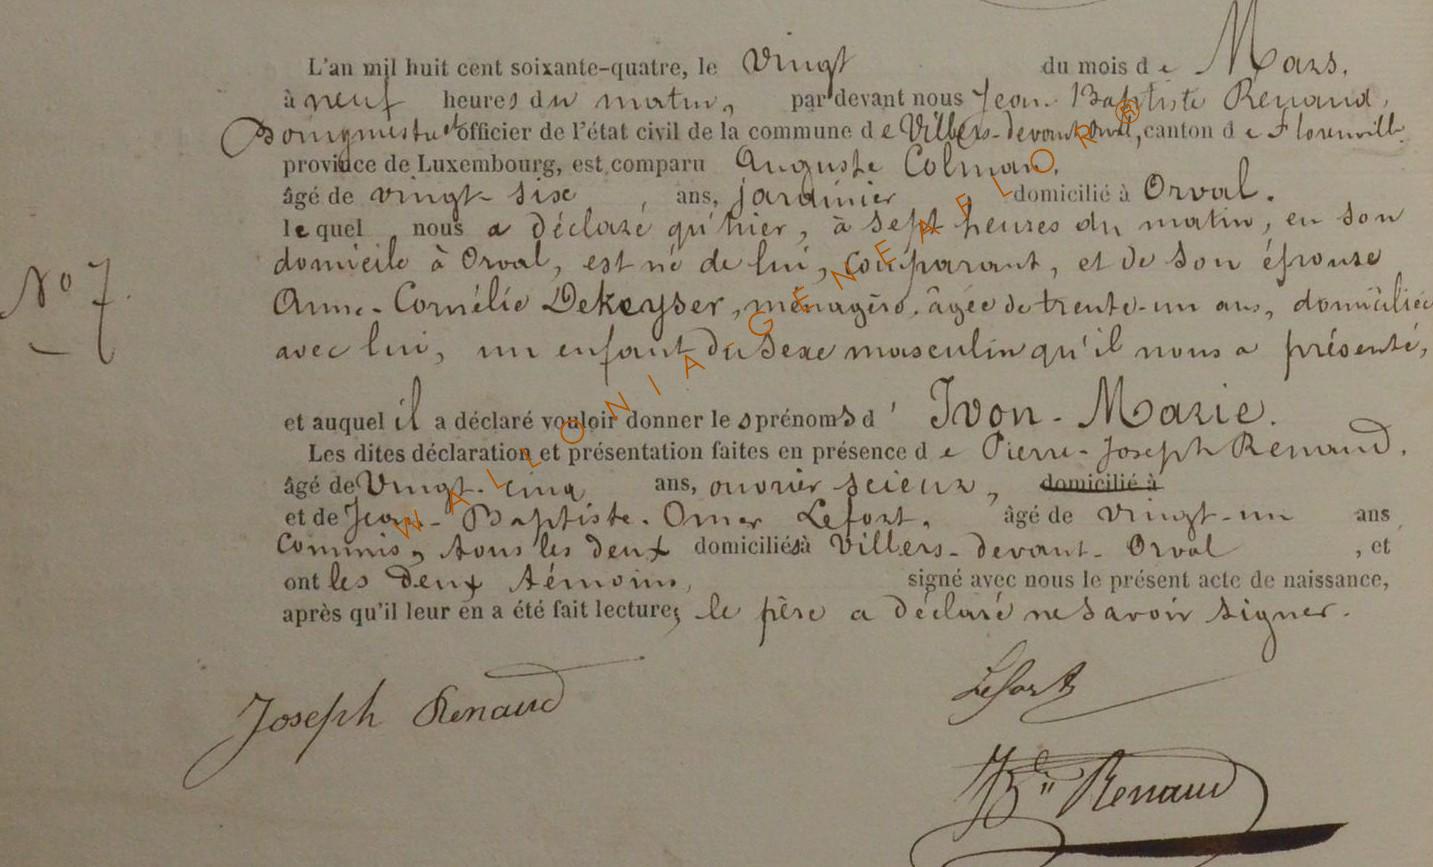 L'an mil huit cent soixante-quatre, le vingt du mois de Mars.
à neuf heures du matin, par devant nous Jean Baptiste Renaud,
Bourgmestre et officier de l'état civil de la commune de Villers-devant-Orval, canton de Florenville
province de Luxembourg, est comparu Auguste Colman,
âgé de vingt-six, ans, jardinier domicilié à Orval.
lequel nous a déclaré qu'hier, à sept heures du matin, en son
domicile à Orval, est né de lui, comparant, et de son épouse
N° 7.
Anne-Cornélie Dekeyser, ménagère, âgée de trente-un ans, domiciliée
avec lui, un enfant du sexe masculin qu'il nous a présenté,
et auquel il a déclaré vouloir donner les prénoms d' Ivon-Marie.
Les dites déclaration et présentation faites en présence de Pierre-Joseph Renaud,
âgé de Vingt-cinq ans, ouvrier scieur, domicilié à
et de Jean-Baptiste-Omer Lefort, âgé de vingt-un ans
Commis, tous les deux domiciliés à Villers-devant-Orval, et
ont les deux témoins, signé avec nous le présent acte de naissance,
après qu'il leur en a été fait lecture; le père a déclaré ne savoir signer.
Joseph Renaud
Lefort
JBte Renaud
WALLONIA-GENEAFLOR®